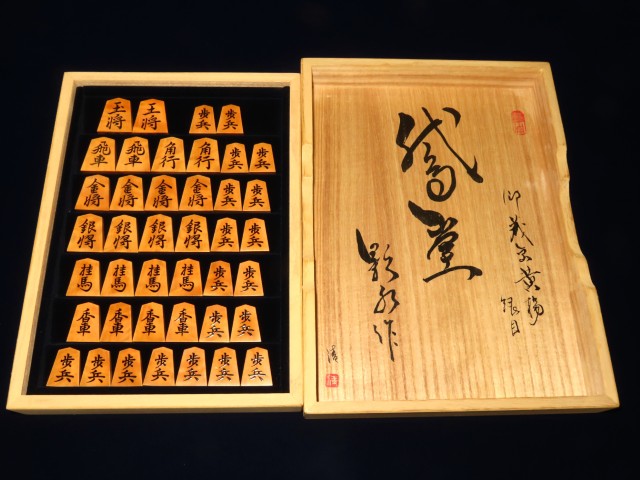 玉将 王将 歩兵 歩兵
飛車 飛車 角行 角行 歩兵 歩兵
金将 金将 金将 金将 歩兵 歩兵
銀将 銀将 銀将 銀将 歩兵 歩兵
桂馬 桂馬 桂馬 桂馬 歩兵 歩兵
香車 香車 香車 香車 歩兵 歩兵
歩兵 歩兵 歩兵 歩兵 歩兵 歩兵 歩兵
御蔵島黄楊
鵞堂
影水作